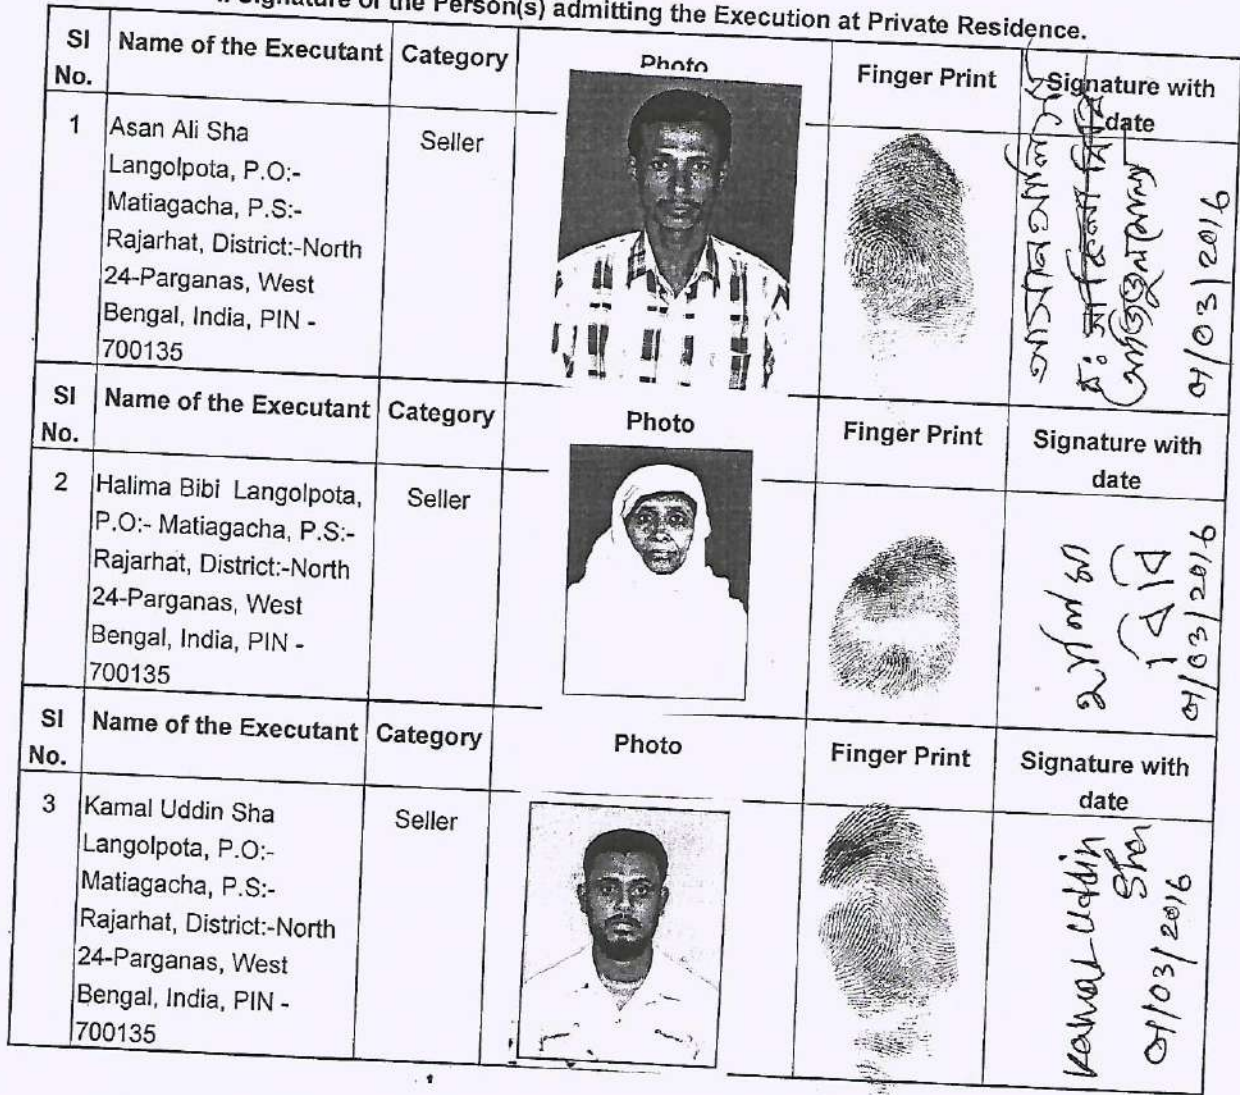 Signature of the Person(s) admitting the Execution at Private Residence.
Sl No. Name of the Executant Category Photo Finger Print Signature with date
1 Asan Ali Sha
Langolpota, P.O:-
Matiagacha, P.S:-
Rajarhat, District:-North
24-Parganas, West
Bengal, India, PIN -
700135
Seller
01/03/2016
Sl No. Name of the Executant Category Photo Finger Print Signature with date
2 Halima Bibi Langolpota,
P.O:- Matiagacha, P.S:-
Rajarhat, District:-North
24-Parganas, West
Bengal, India, PIN -
700135
Seller
হালিমা
বিবি
01/03/2016
Sl No. Name of the Executant Category Photo Finger Print Signature with date
3 Kamal Uddin Sha
Langolpota, P.O:-
Matiagacha, P.S:-
Rajarhat, District:-North
24-Parganas, West
Bengal, India, PIN -
700135
Seller
Kamal Uddin
Sha
01/03/2016